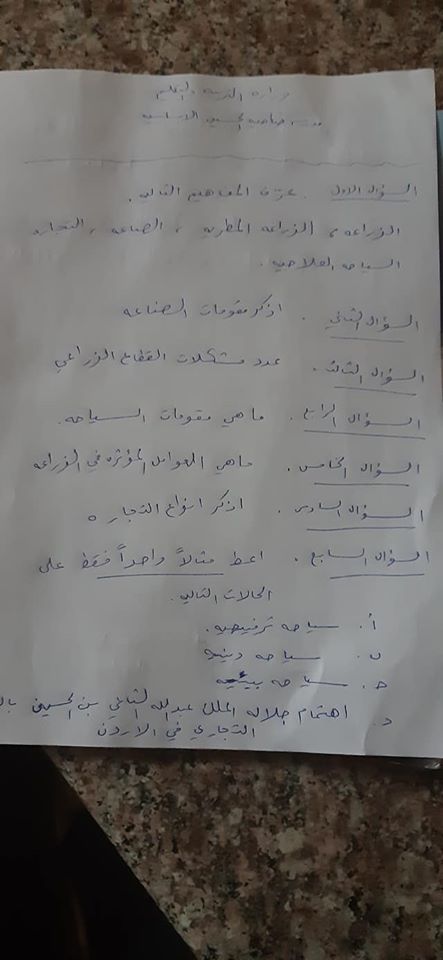 وزارة التربية والتعليم
مدرسة ضاحية الحسين الاساسية
السؤال الاول . عرّف المفاهيم التالية .
الزراعة ، الزراعة المطرية ، الصناعة ، التجارة
السياحة العلاجية .
السؤال الثاني . اذكر مقومات الصناعة
السؤال الثالث . عدد مشكلات القطاع الزراعي
السؤال الرابع . ما هي مقومات السياحة .
السؤال الخامس . ماهي العوامل المؤثرة في الزراعة
السؤال السادس . اذكر انواع التجارة
السؤال السابع . اعط مثالاً واحداً فقط على
الحالات التالية .
أ. سياحة ترفيهية .
ب. سياحة دينية
ج. سياحة بيئية
د. اهتمام جلالة الملك عبدالله الثاني بن الحسين
التجاري في الاردن